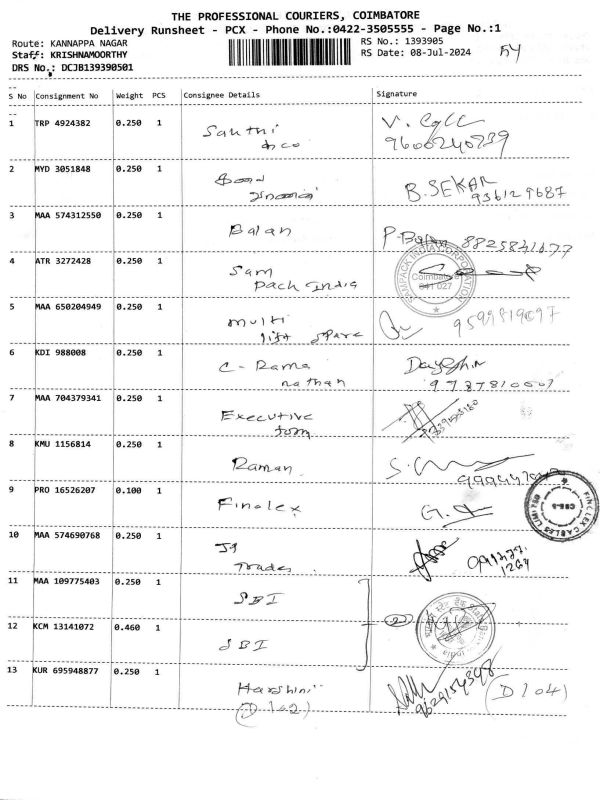 THE PROFESSIONAL COURIERS, COIMBATORE
Delivery Runsheet - PCX - Phone No.:0422-3505555 - Page No.:1
Route: KANNAPPA NAGAR
RS No.: 1393905
Staff: KRISHNAMOORTHY
RS Date: 08-Jul-2024
DRS No.: DCJB139390501
S No Consignment No Weight PCS Consignee Details Signature
1 TRP 4924382 0.250 1 Santhi
9600240739
2 MYD 3051848 0.250 1
B.SEKAR
936129687
3 MAA 574312550 0.250 1 Balan P-Balan 8825841677
4 ATR 3272428 0.250 1 Sam
Pack India
SAMPACK INDIA CORPORATION
Coimbatore
641 027
5 MAA 650204949 0.250 1 multi
lift spare
9599819097
6 KDI 988008 0.250 1 C- Rama
nathan
7 MAA 704379341 0.250 1 Executive
8 KMU 1156814 0.250 1 Raman
9 PRO 16526207 0.100 1 Finolex
FINOLEX CABLES LIMITED
10 MAA 574690768 0.250 1
Trades
11 MAA 109775403 0.250 1 SBI
12 KCM 13141072 0.460 1 SBI
13 KUR 695948877 0.250 1 Harshini
D 102
9629154348
(D104)